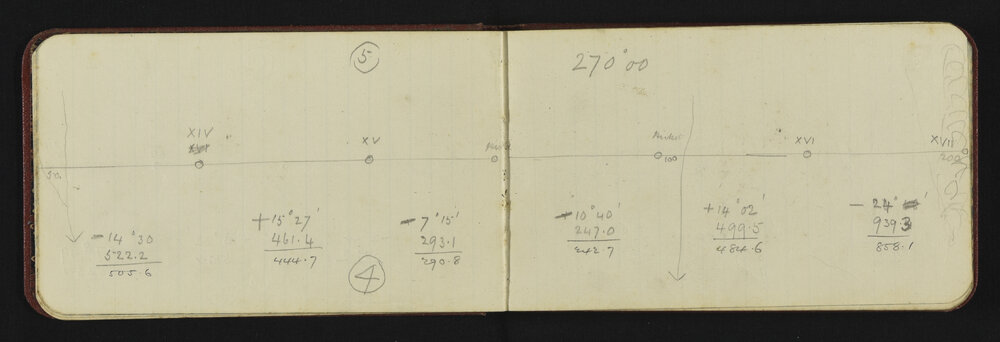 5
270°00
XIV
XV
XVI
XVII
50
100
200
-14°30
522.2
505.6
+15°27'
461.4
444.7
-7°15'
293.1
290.8
4
10°40'
247.0
242.7
+14°02'
499.5
484.6
-24°
939.3
858.1